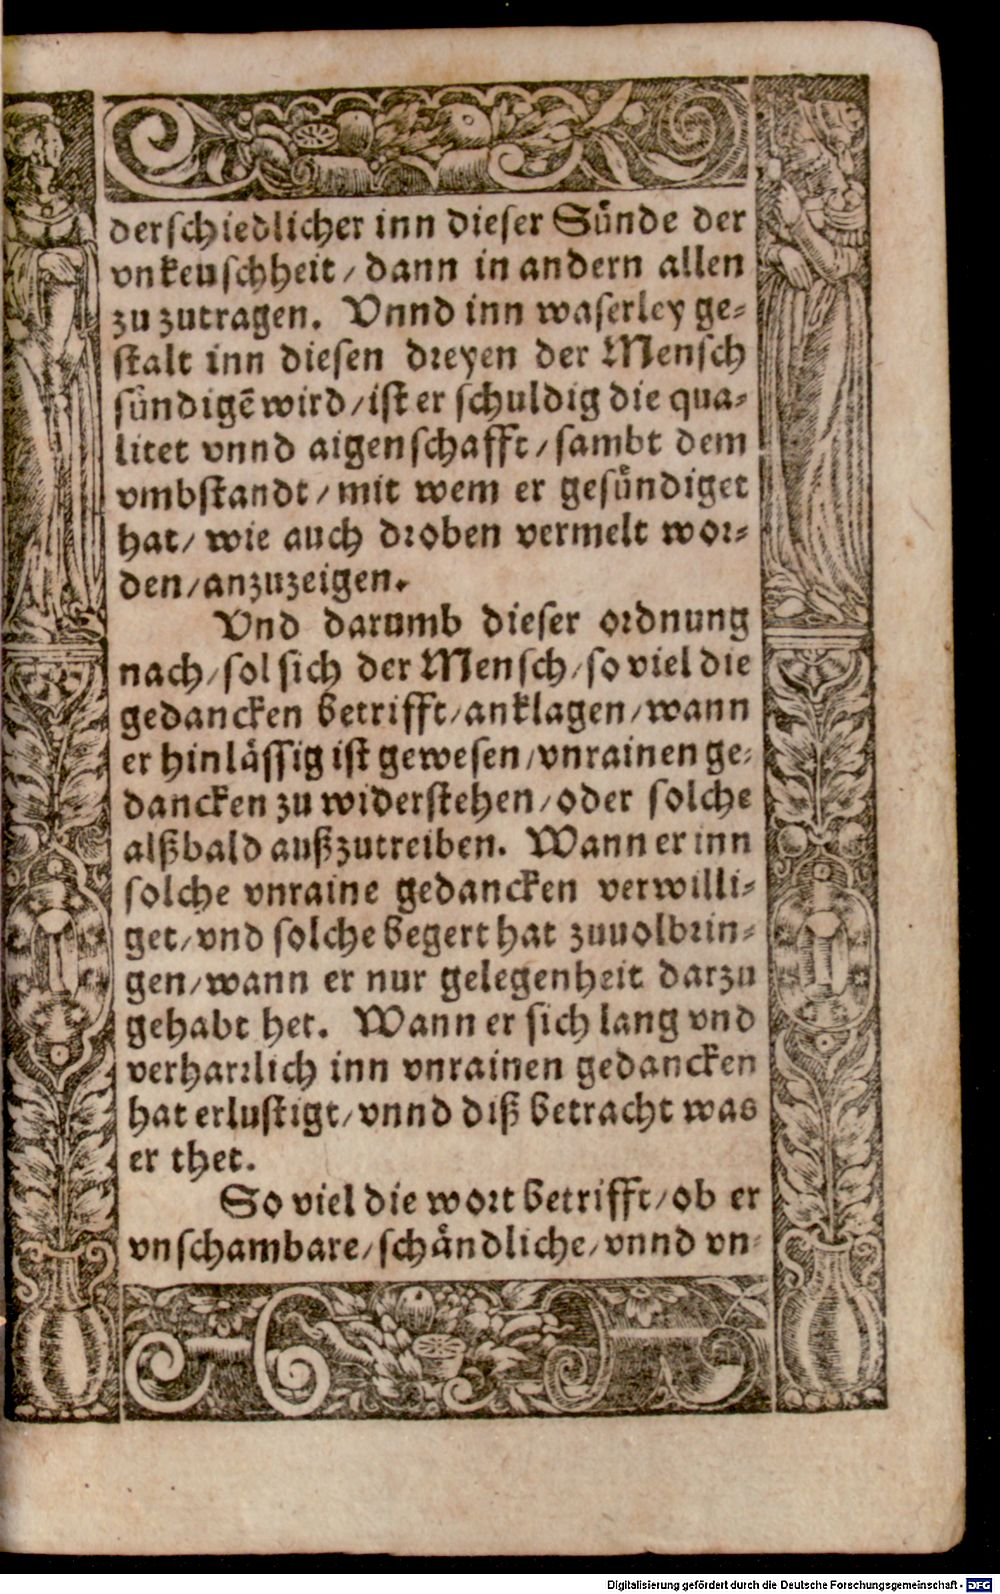 derschiedlicher inn dieser Sünde der
vnkeuschheit/ dann in andern allen
zu zutragen. Vnnd inn waserley ge-
stalt inn diesen dreyen der Mensch
sündigē wird/ ist er schuldig die qua-
litet vnnd aigenschafft/ sambt dem
vmbstandt/ mit wem er gesündiget
hat/ wie auch droben vermelt wor-
den/ anzuzeigen.
Vnd darumb dieser ordnung
nach/ sol sich der Mensch/ so viel die
gedancken betrifft/ anklagen/ wann
er hinlässig ist gewesen/ vnrainen ge-
dancken zu widerstehen/ oder solche
alßbald außzutreiben. Wann er inn
solche vnraine gedancken verwilli-
get/ vnd solche begert hat zuuolbrin-
gen/ wann er nur gelegenheit darzu
gehabt het. Wann er sich lang vnd
verharrlich inn vnrainen gedancken
hat erlustigt/ vnnd diß betracht was
er thet.
So viel die wort betrifft/ ob er
vnschambare/ schändliche/ vnnd vn-
Digitalisierung gefördert durch die Deutsche Forschungsgemeinschaft - DFG